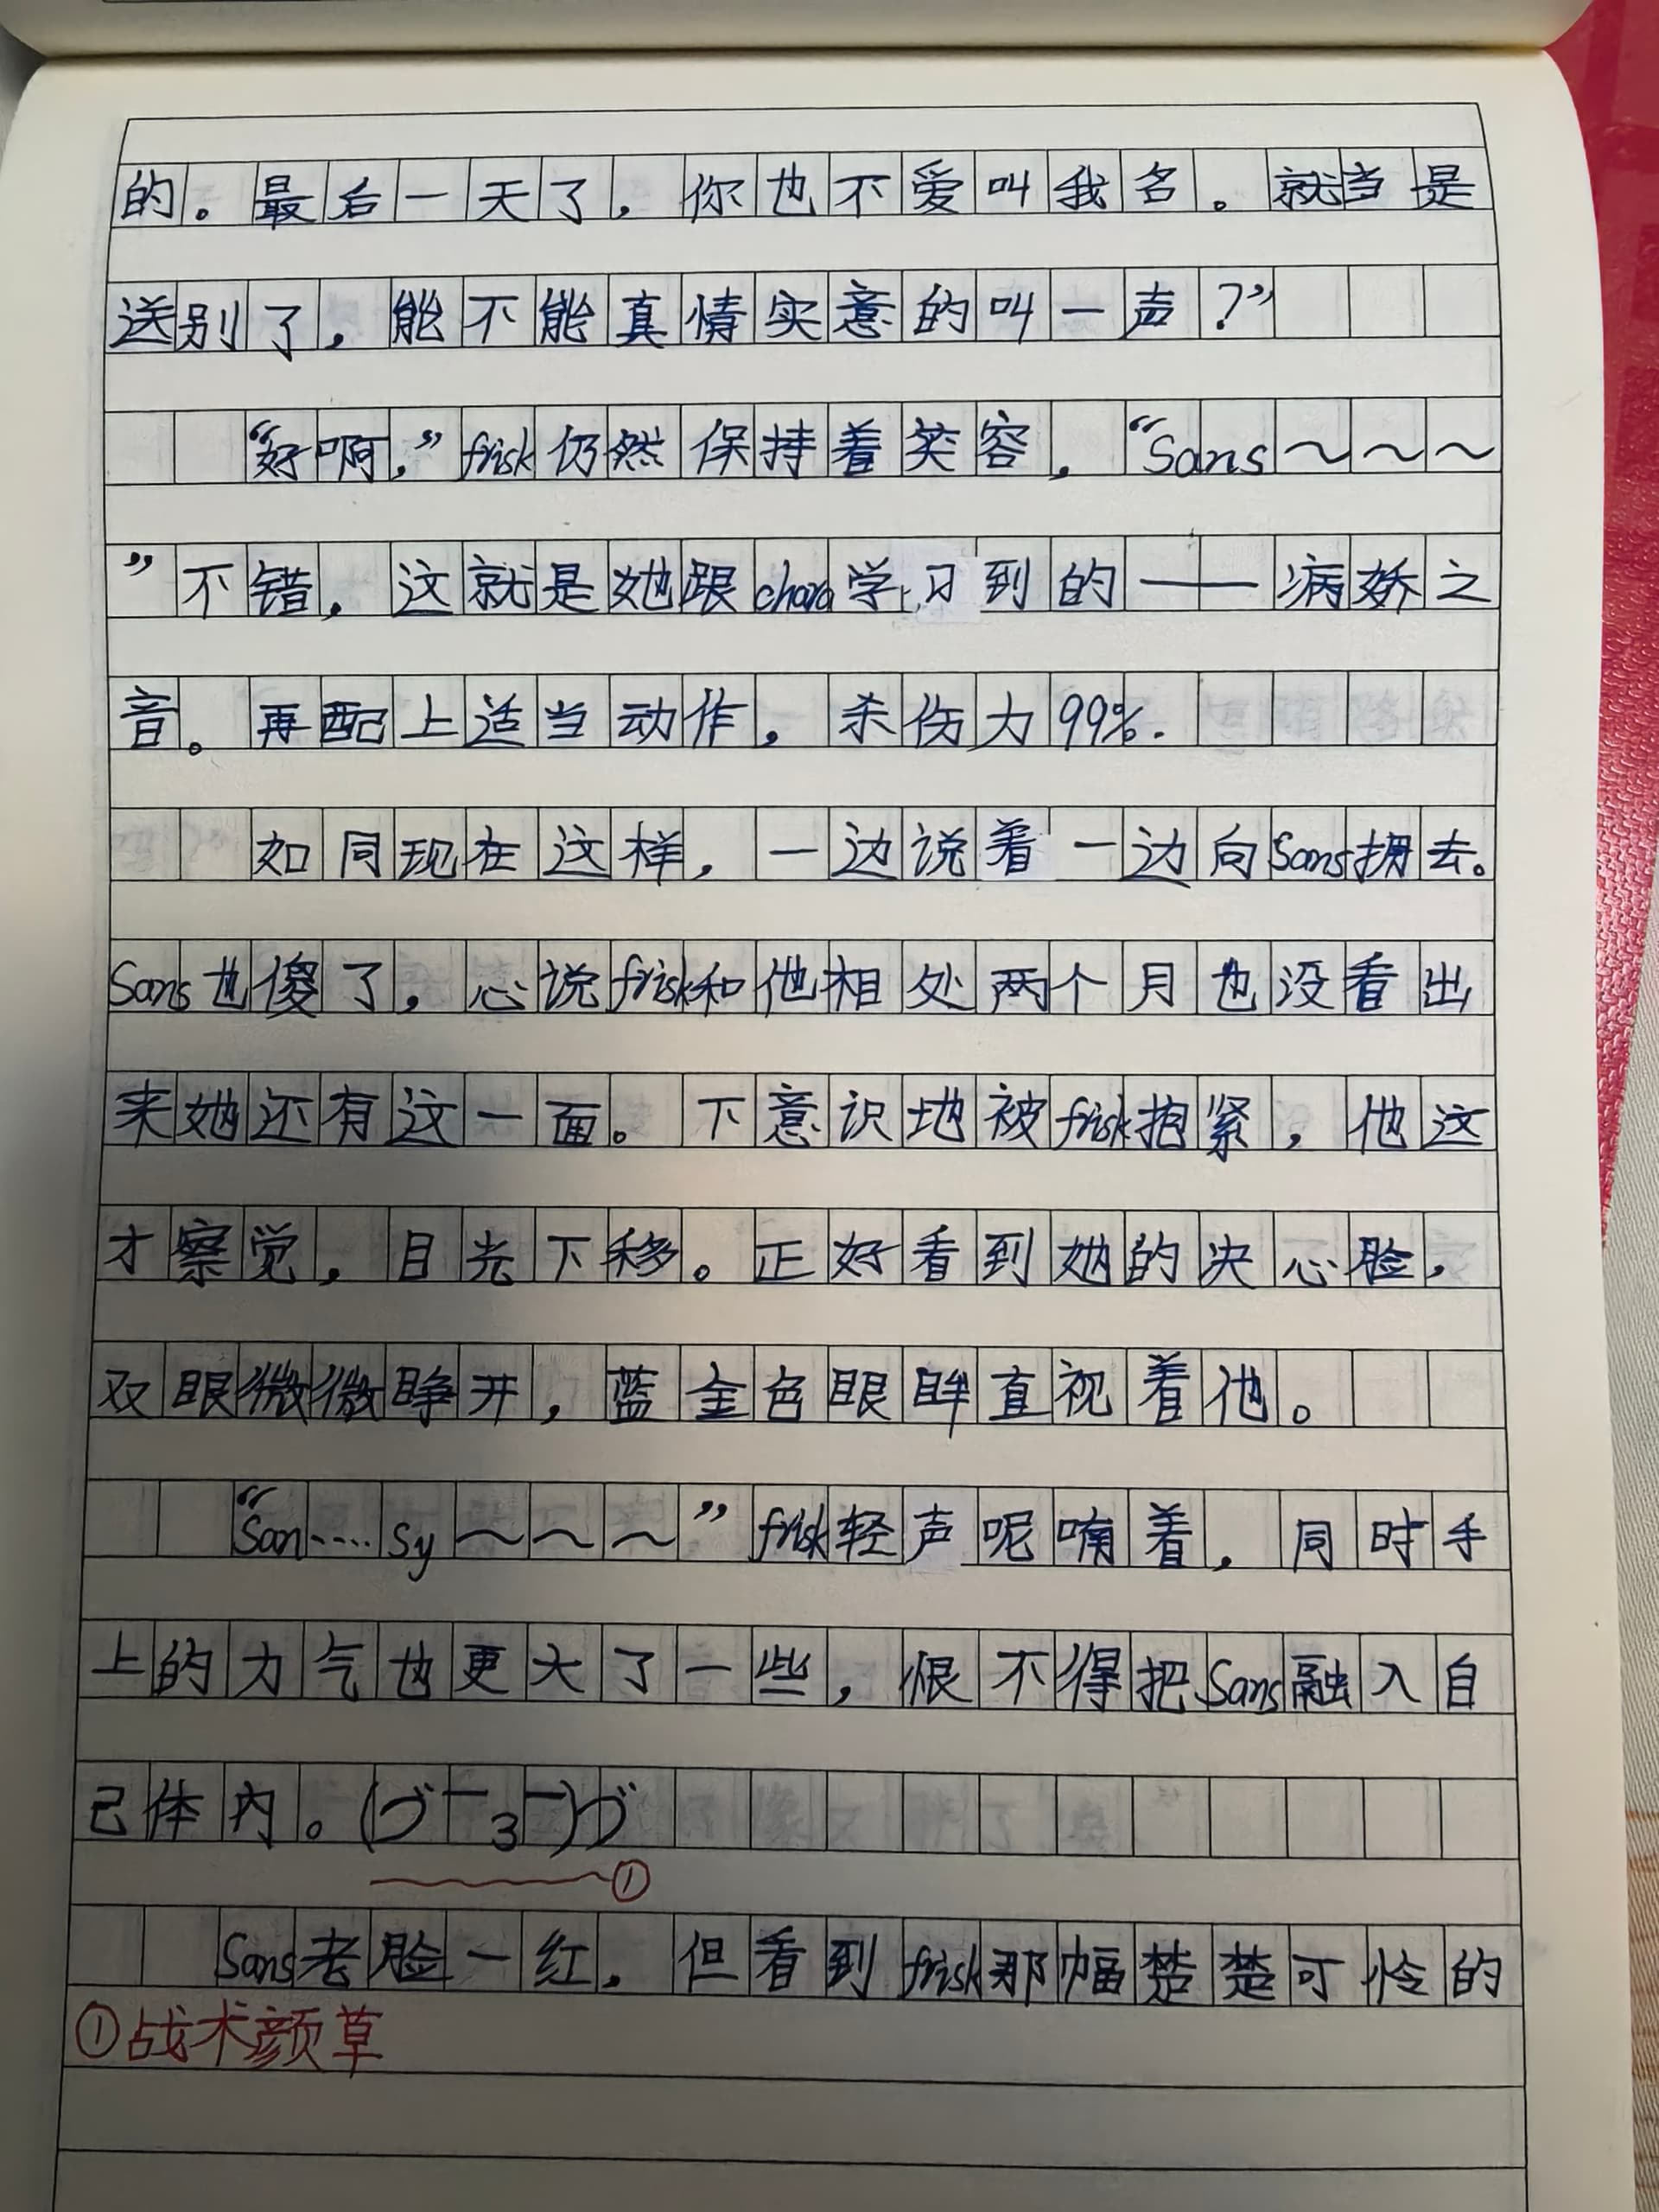 的。最后一天了，你也不爱叫我名。就当是
送别了，能不能真情实意的叫一声？”
“好啊，”frisk仍然保持着笑容，“Sans～～～
”不错，这就是她跟chara学习到的——病娇之
音。再配上适当动作，杀伤力99%.
如同现在这样，一边说着一边向Sans拥去。
Sans也傻了，心说frisk和他相处两个月也没看出
来她还有这一面。下意识地被frisk抱紧，他这
才察觉，目光下移。正好看到她的决心脸，
双眼微微睁开，蓝金色眼眸直视着他。
“San....sy～～～”frisk轻声呢喃着，同时手
上的力气也更大了一些，恨不得把Sans融入自
己体内。(づ￣3￣)づ
①
Sans老脸一红，但看到frisk那幅楚楚可怜的
①战术颜草